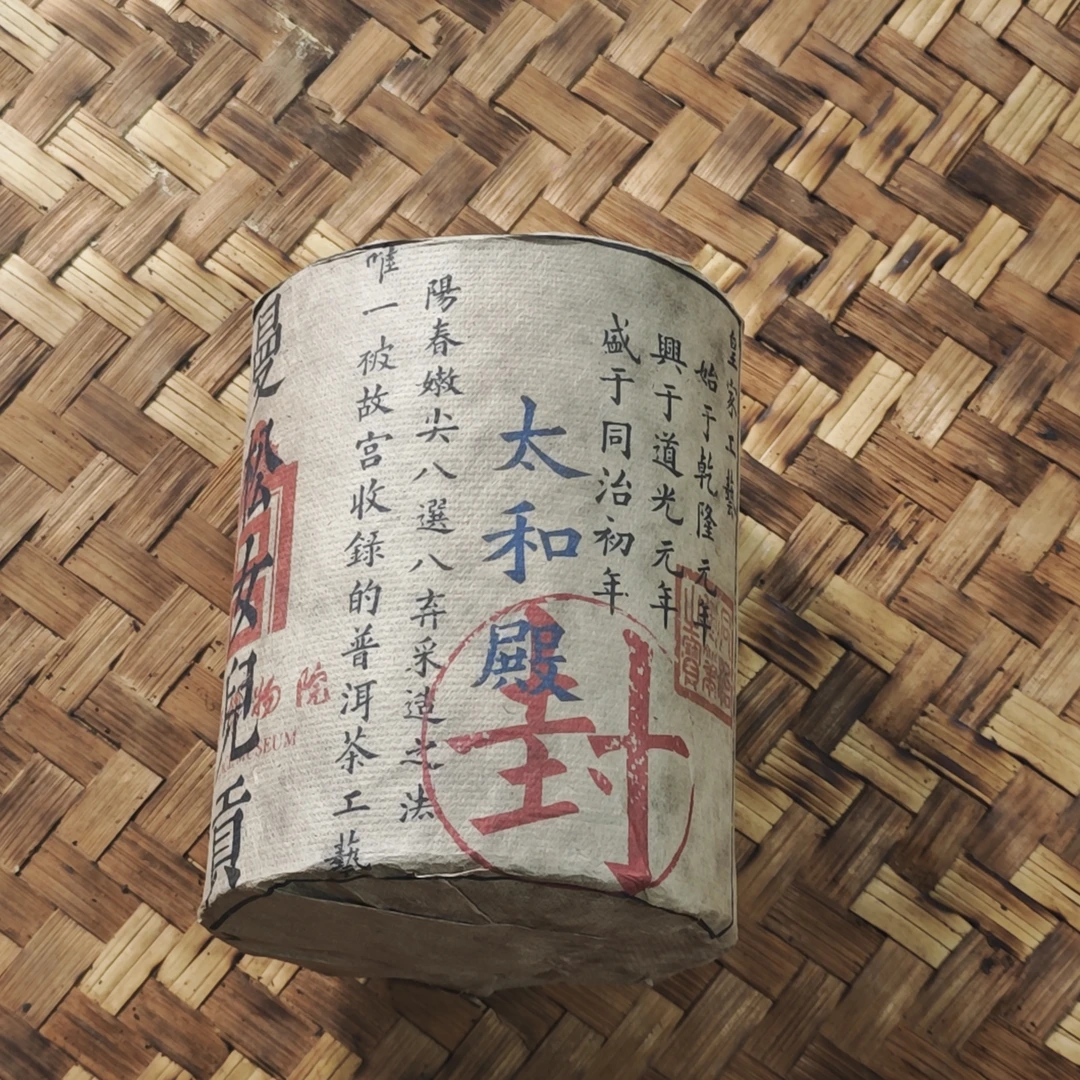 皇家工藝
始于乾隆元年
興于道光元年
盛于同治初年
太和殿
封
陽春嫩尖八選八弃采造之法
唯一被故宫收録的普洱茶工藝
曼松女兒貢
物院
SEUM